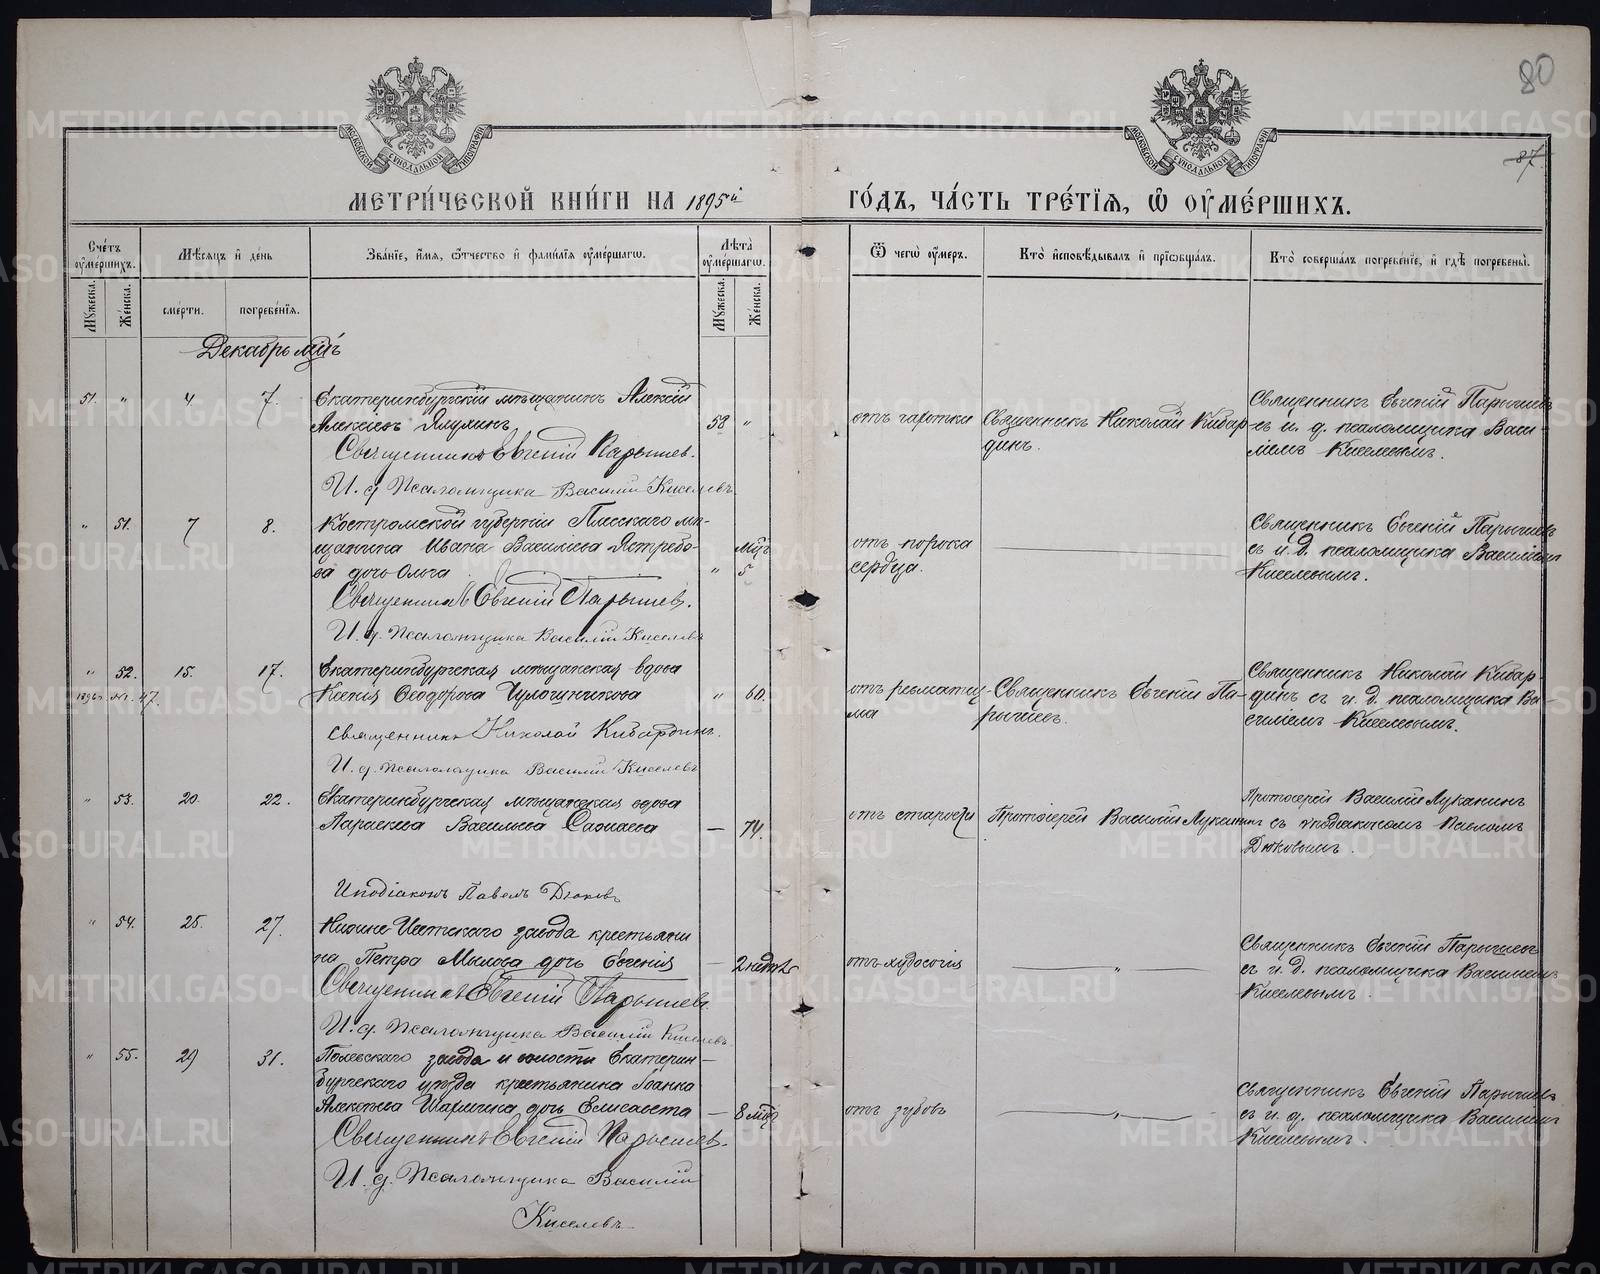 80
87
МОСКОВСКОЙ СѴНОДАЛЬНОЙ ТИПОГРАФІИ
МОСКОВСКОЙ СѴНОДАЛЬНОЙ ТИПОГРАФІИ
МЕТРИ́ЧЕСКОЙ КНИ́ГИ НА 1895й ГО́ДЪ, ЧА́СТЬ ТРЕ́ТІЯ, Ѡ ОУ҆МЕ́РШИХЪ.
Сче́тъ оу҆ме́ршихъ.
Мѣсяцъ и҆ де́нь
Зва́ніе, и҆́мя, ѻ҆́тчество и҆ фами́лія оу҆ме́ршагѡ.
Лѣта̀ оу҆ме́ршагѡ.
Ѿ чегѡ̀ оу҆́меръ.
Кто̀ и҆сповѣ́дывалъ и҆ прїѡбща́лъ.
Кто̀ соверша́лъ погребе́ніе, и҆ гдѣ̀ погребены̀.
Мꙋ́жеска.
Же́нска.
сме́рти.
погребе́нія.
Мꙋ́жеска.
Же́нска.
Декабрь мцъ
51. " 4. 7. Екатеринбургскій мѣщанинъ Алексій
Алексіевъ Ялухинъ 58 "
Священникъ Евгеній Парышев.
И. д. Псаломщика Василій Киселевъ.
отъ чахотки
Священникъ Николай Кибар-
динъ.
Священникъ Евгеній Парышевъ
съ и. д. псаломщика Васи-
ліемъ Киселевымъ.
" 51. 7 8. Костромской губерніи Плесскаго мѣ-
щанина Ивана Василіева Ястребо-
ва дочь Ольга. " мцъ 5
Священникъ Евгеній Парышев.
И. д. Псаломщика Василій Киселевъ
отъ порока
сердца.
Священникъ Евгеній Парышевъ
съ и. д. псаломщика Василіемъ
Киселевымъ.
" 52. 15. 17. Екатеринбургская мѣщанская вдова
1896г. 47. Ксенія Ѳеодорова " 60.
Священникъ Николай Кибардинъ.
И. д. псаломщика Василій Киселевъ
отъ ревматиз-
ма
Священникъ Евгеній Па-
рышев.
Священникъ Николай Кибар-
динъ съ и. д. псаломщика Ва-
силіемъ Киселевымъ.
" 53. 20. 22. Екатеринбургская мѣщанская вдова
Параскева Васильева — 74.
Иподіаконъ Павелъ Дюковъ
отъ старости
Протоіерей Василій Луканинъ
Протоіерей Василій Луканинъ
съ иподіакономъ Павломъ
Дюковымъ.
" 54. 25. 27. Нижне-Исетскаго завода крестьяни
на Петра Мылова дочь Евгенія — 2
Священникъ Евгеній Парышевъ.
И. д. Псаломщика Василій Киселевъ.
отъ худосочія
— " —
Священникъ Евгеній Парышевъ
съ и. д. псаломщика Василіемъ
Киселевымъ.
" 55. 29 31. Полевскаго завода и волости Екатерин-
бургскаго уѣзда крестьянина Іоанна
Алексѣева дочь Елисавета — 8 мцъ
Священникъ Евгеній Парышев.
И. д. Псаломщика Василій
Киселевъ
отъ зубовъ
— " —
Священникъ Евгеній Парышевъ
съ и. д. псаломщика Василіемъ
Киселевымъ.
METRIKI.GASO-URAL.RU